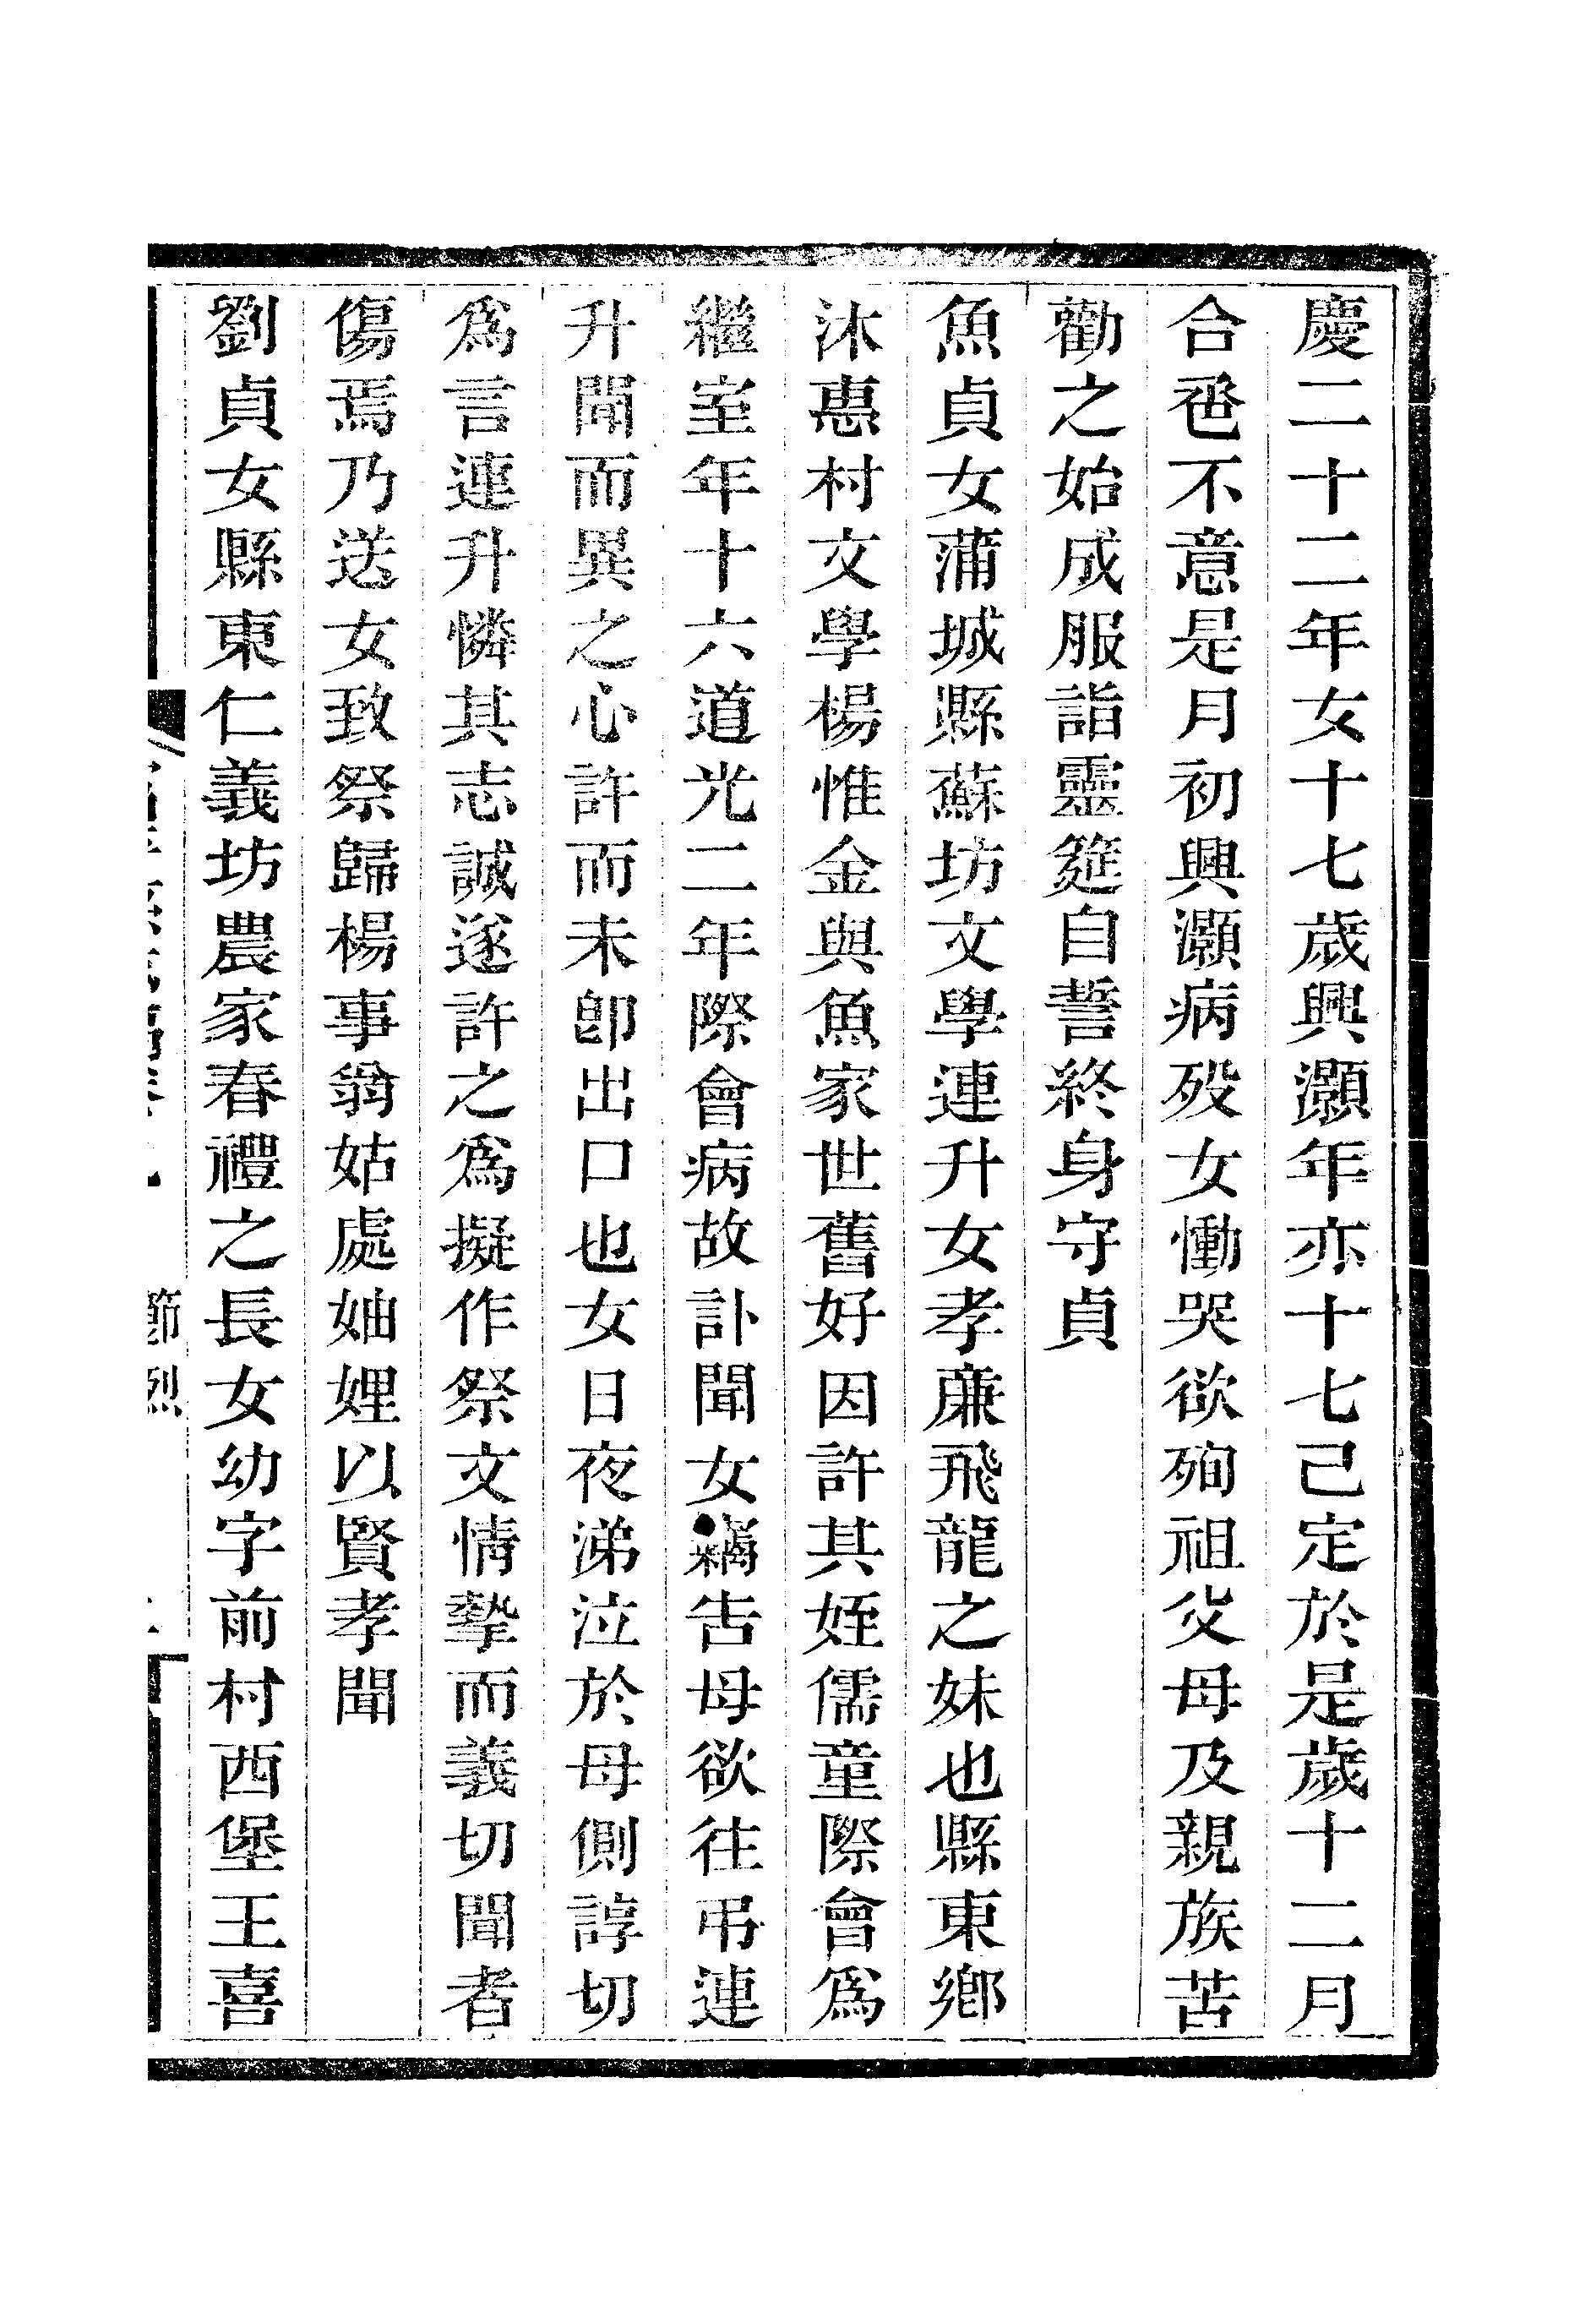 慶二十二年女十七歲興灝年亦十七己定於是歲十二月
合卺不意是月初興灝病歿女慟哭欲殉祖父母及親族苦
勸之始成服詣靈筵自誓終身守貞
魚貞女蒲城縣蘇坊文學連升女孝廉飛龍之妹也縣東鄉
沐惠村文學楊惟金與魚家世舊好因許其姪儒童際會爲
繼室年十六道光二年際會病故訃聞女竊告母欲往弔連
升聞而異之心許而未卽出口也女日夜涕泣於母側諄切
爲言連升憐其志誠遂許之爲擬作祭文情摯而義切聞者
傷焉乃送女致祭歸楊事翁姑處妯娌以賢孝聞
劉貞女縣東仁義坊農家春禮之長女幼字前村西堡王喜
節烈